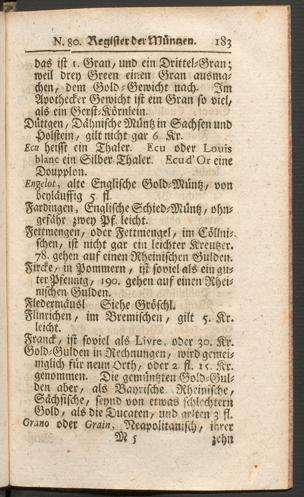 N. 80. Register der Müntzen. 183
das ist 1. Gran, und ein Drittel-Gran;
weil drey Green einen Gran ausma-
chen, dem Gold-Gewicht nach. Im
Apothecker Gewicht ist ein Gran so viel,
als ein Gerst-Körnlein.
Düttgen, Dähnische Müntz in Sachsen und
Holstein, gilt nicht gar 6. Kr.
Ecu heisst ein Thaler. Ecu oder Louis
blanc ein Silber-Thaler. Ecu d'Or eine
Doupplon.
Engelot, alte Englische Gold-Müntz, von
beyläuffig 5 fl.
Fardingen, Englische Schied-Müntz, ohn-
gefähr zwey Pf. leicht.
Fettmengen, oder Fettmengel, im Cöllni-
schen, ist nicht gar ein leichter Kreutzer.
78. gehen auf einen Rheinischen Gulden.
Fircke, in Pommern, ist soviel als ein gu-
ter Pfennig, 190. gehen auf einen Rhei-
nischen Gulden.
Fledermäusl Siehe Gröschl.
Flinrichen, im Bremischen, gilt 5. Kr.
leicht.
Franck, ist soviel als Livre, oder 30. Kr.
Gold-Gulden in Rechnungen, wird gemei-
niglich für neun Orth, oder 2. fl. 15. Kr.
genommen. Die gemüntzten Gold-Gul-
den aber, als Bayrische, Rheinische,
Sächsische, seynd von etwas schlechtern
Gold, als die Ducaten, und gelten 3 fl.
Grano oder Grain, Neapolitanisch, ihrer
M 5 zehn